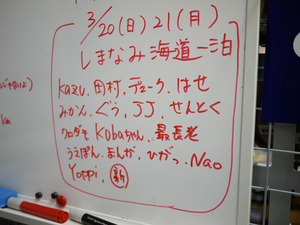 3/20(日)21(月)
しまなみ海道一泊
kazu、田村、デューク、はせ
みかん、ぐう、JJ、せんとく
クロダモ Kobaちゃん、最長老
うえぽん、まんが、ひがっ、Nao
Yoppi、新